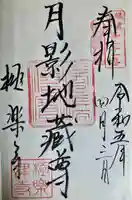 奉拝
令和五年
四月二日
月影地蔵尊
極楽寺